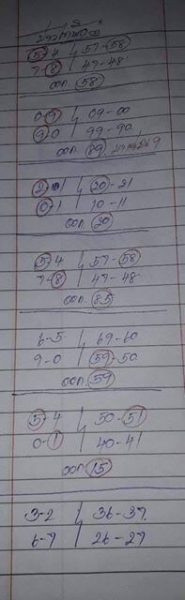 5-4 57-58
7-8 47-48
ออก 58
0-9 09-00
9-0 99-90
ออก 89
2-1 20-21
0-1 10-11
ออก 20
5-4 57-58
7-8 47-48
ออก 85
6-5 69-60
9-0 59-50
ออก 59
5-4 50-51
0-1 40-41
ออก 15
3-2 36-37
6-7 26-27